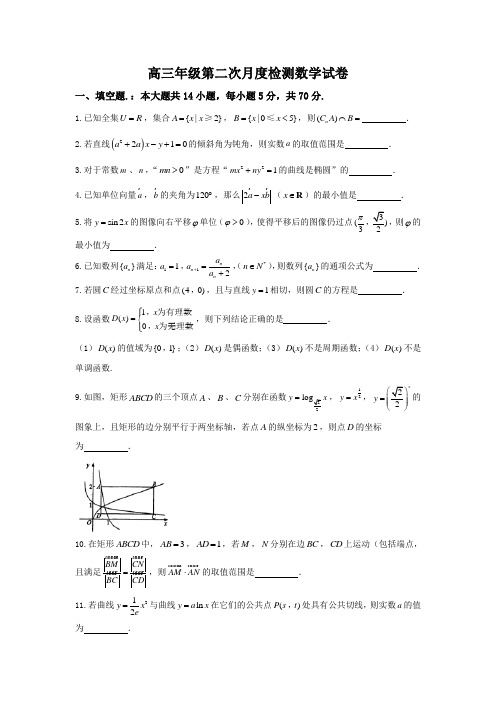 高三年级第二次月度检测数学试卷
一、填空题.：本大题共 14 小题，每小题 5 分，共 70 分.
1.已知全集 U = R ，集合 A = {x | x ≥ 2} ，B = {x | 0 ≤ x < 5} ，则 (CᵤA) ∩ B = .
2.若直线 (a² + 2a) x − y + 1 = 0 的倾斜角为钝角，则实数 a 的取值范围是 .
3.对于常数 m 、 n ，“ mn > 0 ”是方程“ mx² + ny² = 1 的曲线是椭圆”的 .
4.已知单位向量 a ， b 的夹角为 120° ，那么 | 2a − xb | （ x ∈ R ）的最小值是 .
5.将 y = sin 2x 的图像向右平移 φ 单位（ φ > 0 ），使得平移后的图像仍过点 (π/3 , √3/2) ，则 φ 的
最小值为 .
6.已知数列 {aₙ} 满足：a₁ = 1 ，aₙ₊₁ = aₙ/(aₙ + 2) ，（ n ∈ N* ），则数列 {aₙ} 的通项公式为 .
7.若圆 C 经过坐标原点和点 (4 , 0) ，且与直线 y = 1 相切，则圆 C 的方程是 .
8.设函数 D(x) = { 1，x为有理数
0，x为无理数 ，则下列结论正确的是 .
（1） D(x) 的值域为 {0 , 1} ；（2） D(x) 是偶函数；（3） D(x) 不是周期函数；（4） D(x) 不是
单调函数.
9.如图，矩形 ABCD 的三个顶点 A 、 B 、 C 分别在函数 y = log_(√2/2) x ， y = x^(1/2) ， y = (√2/2)^x 的
图象上，且矩形的边分别平行于两坐标轴，若点 A 的纵坐标为 2 ，则点 D 的坐标
为 .
y
2 A B
1
D C
O 1 x
10.在矩形 ABCD 中， AB = 3 ， AD = 1 ，若 M ， N 分别在边 BC ， CD 上运动（包括端点，
且满足 |BM|/|BC| = |CN|/|CD| ，则 AM · AN 的取值范围是 .
11.若曲线 y = 1/(2e) x² 与曲线 y = a ln x 在它们的公共点 P(s , t) 处具有公共切线，则实数 a 的值
为 .